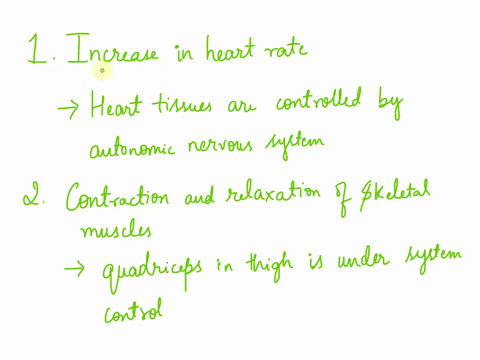 1. Increase in heart rate
→ Heart tissues are controlled by
autonomic nervous system
2. Contraction and relaxation of skeletal
muscles
→ quadriceps in thigh is under system
control